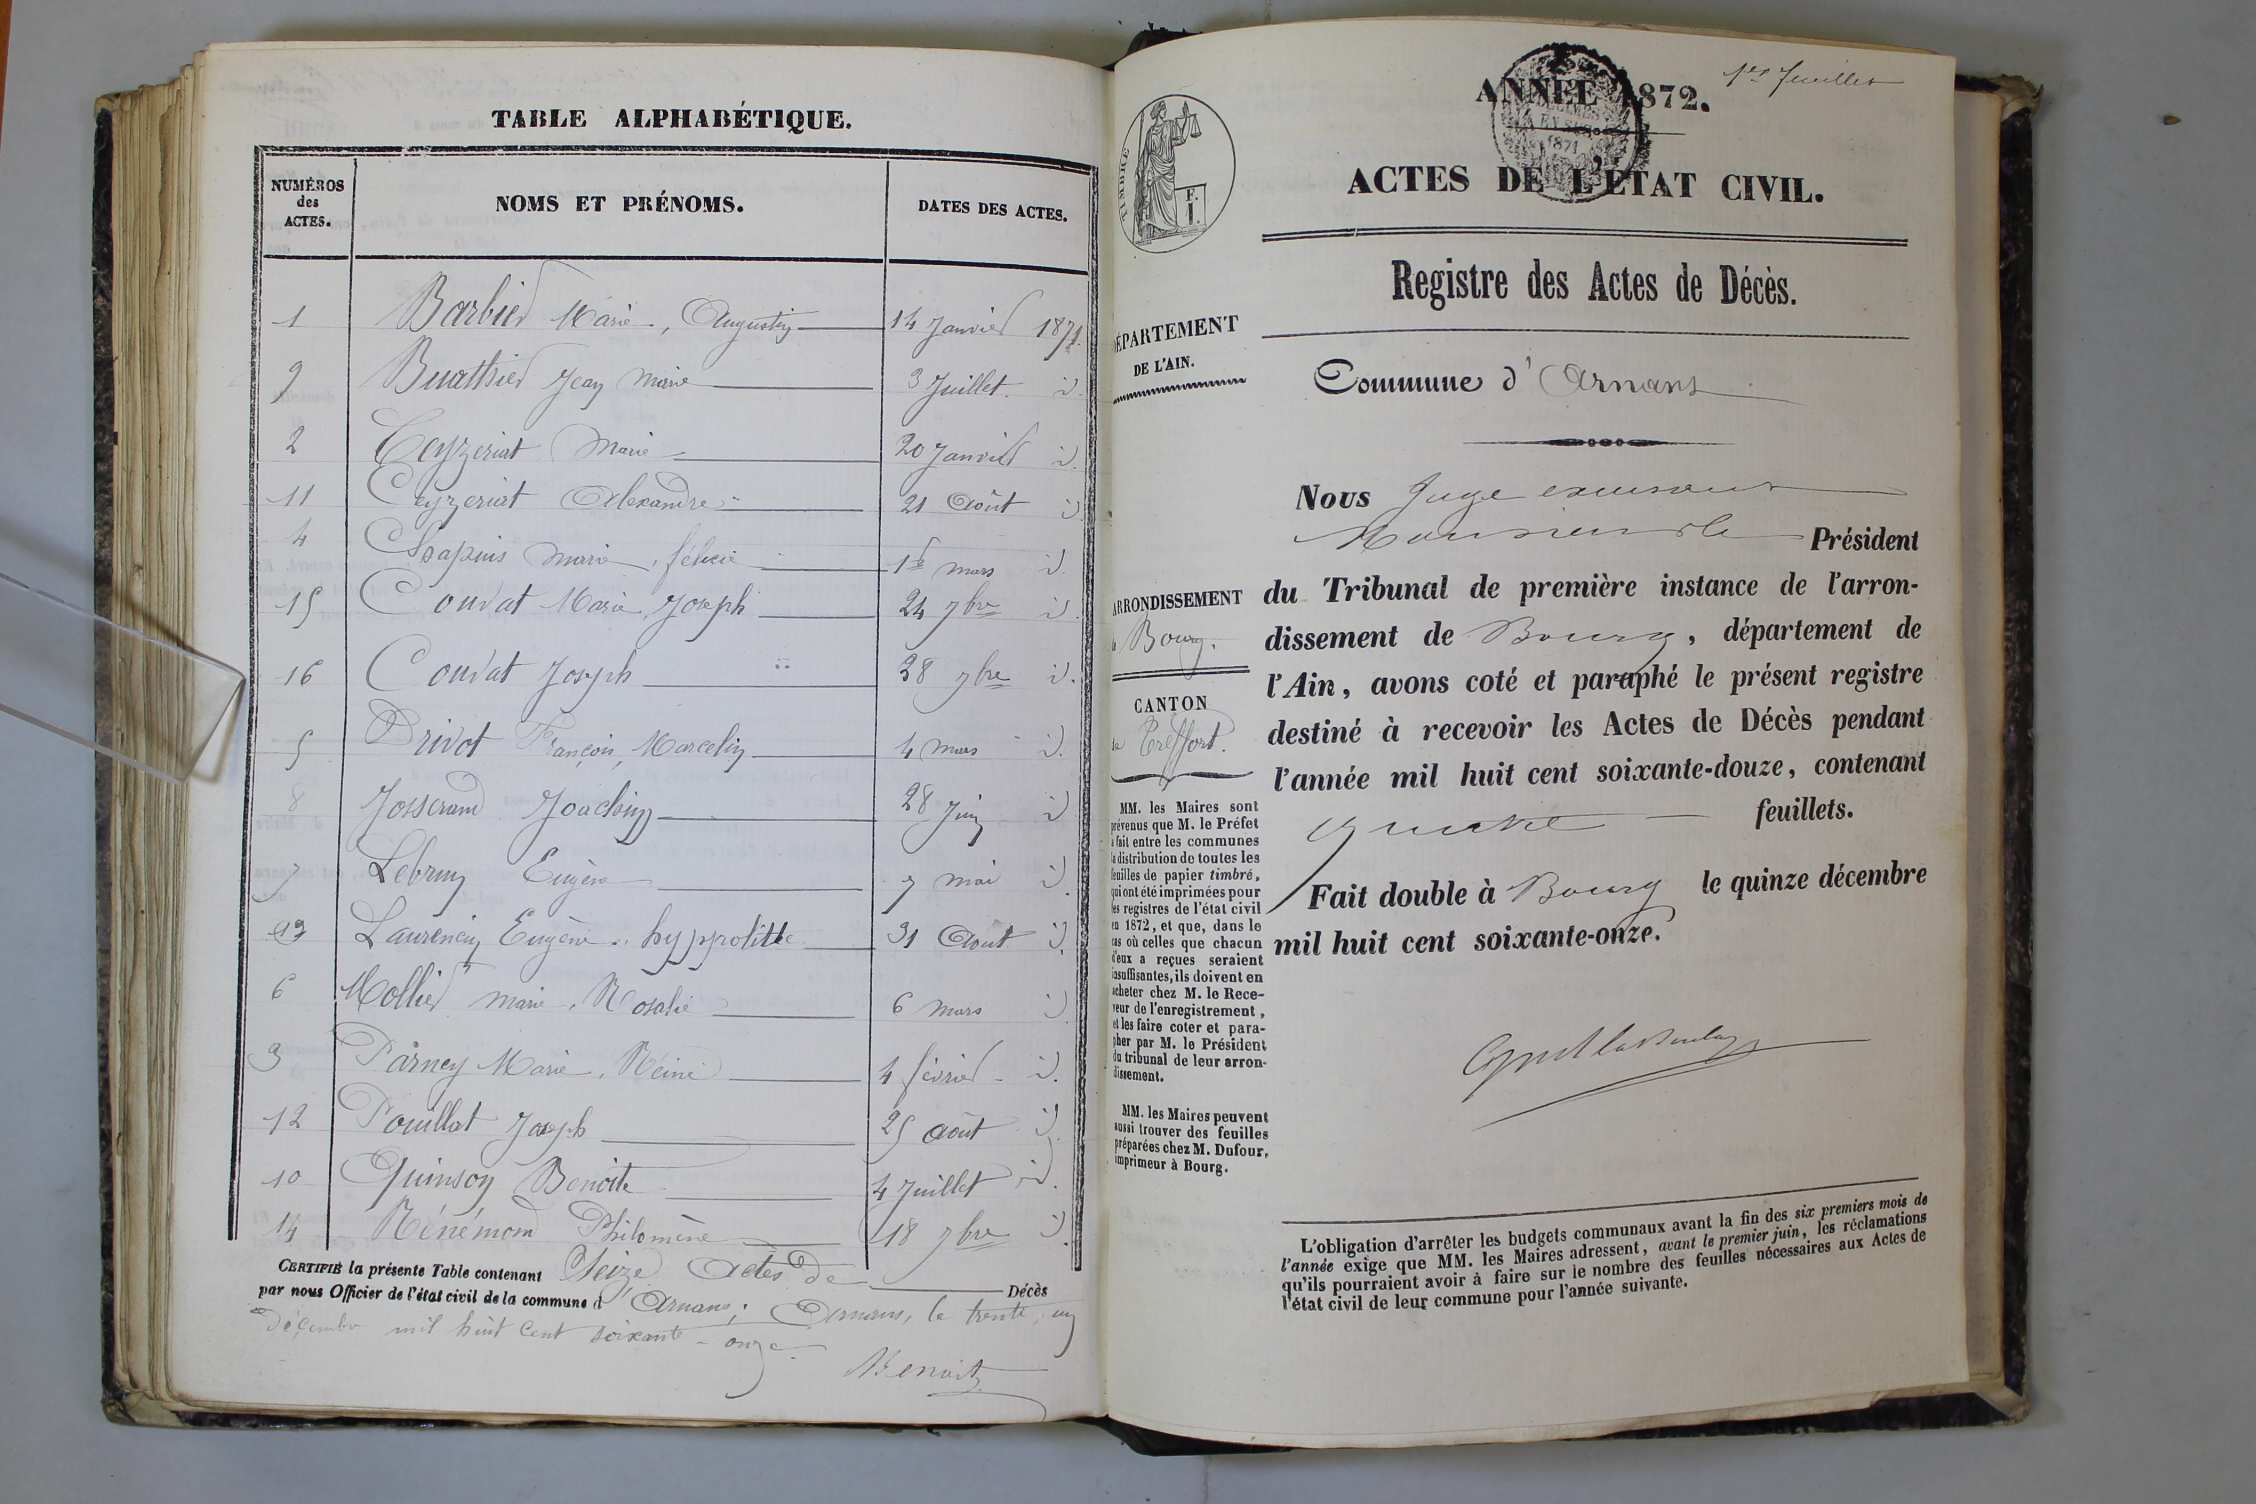 TABLE ALPHABÉTIQUE.
NUMÉROS des ACTES. NOMS ET PRÉNOMS. DATES DES ACTES.
1 Barbier Marie, Augustin 14 Janvier 1871.
9 Buathier Jean Marie 3 Juillet id.
2 Ceyzeriat Marie 20 Janvier id.
11 Ceyzeriat Alexandre 21 Août id
4 Chapuis Marie, félicie 1er mars id.
15 Convat Marie, Joseph 24 7bre id.
16 Convat Joseph 28 7bre id.
5 Drivot François, Marcelin 4 mars id.
8 Josserand Joachim 28 Juin id
7 Lebrun Eugène 7 mai id.
13 Laurencin Eugène hyppolitte 31 Août id.
6 Mollier marie, Rosalie 6 mars id.
3 Parney Marie, Réine 4 février id.
12 Pouillat Joseph 25 août id.
10 Quinson Benoite 4 Juillet id.
14 Rénémond Philomène 18 7bre id.
CERTIFIÉ la présente Table contenant Seize Actes de Décès
par nous Officier de l'état civil de la commune d'Arnans; Arnans, le trente, un
décembre mil huit cent soixante-onze.
Benoit
1er feuillet
ANNÉE 1872.
1871
ACTES DE L'ÉTAT CIVIL.
TIMBRE
F.
I.
Registre des Actes de Décès.
DÉPARTEMENT
DE L'AIN.
Commune d'Arnans
Nous Juge
Monsieur le Président
du Tribunal de première instance de l'arron-
dissement de Bourg, département de
l'Ain, avons coté et paraphé le présent registre
destiné à recevoir les Actes de Décès pendant
l'année mil huit cent soixante-douze, contenant
quatre feuillets.
Fait double à Bourg le quinze décembre
mil huit cent soixante-onze.
ARRONDISSEMENT
Bourg.
CANTON
de Treffort.
MM. les Maires sont
prévenus que M. le Préfet
a fait entre les communes
la distribution de toutes les
feuilles de papier timbré,
qui ont été imprimées pour
les registres de l'état civil
en 1872, et que, dans le
cas où celles que chacun
d'eux a reçues seraient
insuffisantes, ils doivent en
acheter chez M. le Rece-
veur de l'enregistrement,
et les faire coter et para-
pher par M. le Président
du tribunal de leur arron-
dissement.
MM. les Maires peuvent
aussi trouver des feuilles
préparées chez M. Dufour,
imprimeur à Bourg.
L'obligation d'arrêter les budgets communaux avant la fin des six premiers mois de
l'année exige que MM. les Maires adressent, avant le premier juin, les réclamations
qu'ils pourraient avoir à faire sur le nombre des feuilles nécessaires aux Actes de
l'état civil de leur commune pour l'année suivante.